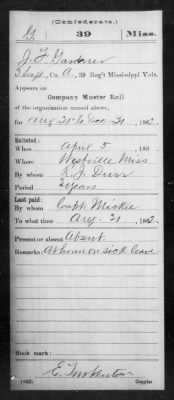 (Confederate.)
G 39 Miss.
J. F. Gardner
Co. A, 39 Reg't Mississippi Vols.
Appears on
Company Muster Roll
of the organization named above,
for Aug 31 to Dec 31, 1862.
Enlisted:
When April 5, 186
Where Westville Miss.
By whom R. J. Durr
Period 2 years
Last paid:
By whom Capt. Mickie
To what time Aug. 31, 1862.
Present or absent Absent
Remarks: At home on sick leave
Book mark:
(642) Copyist.